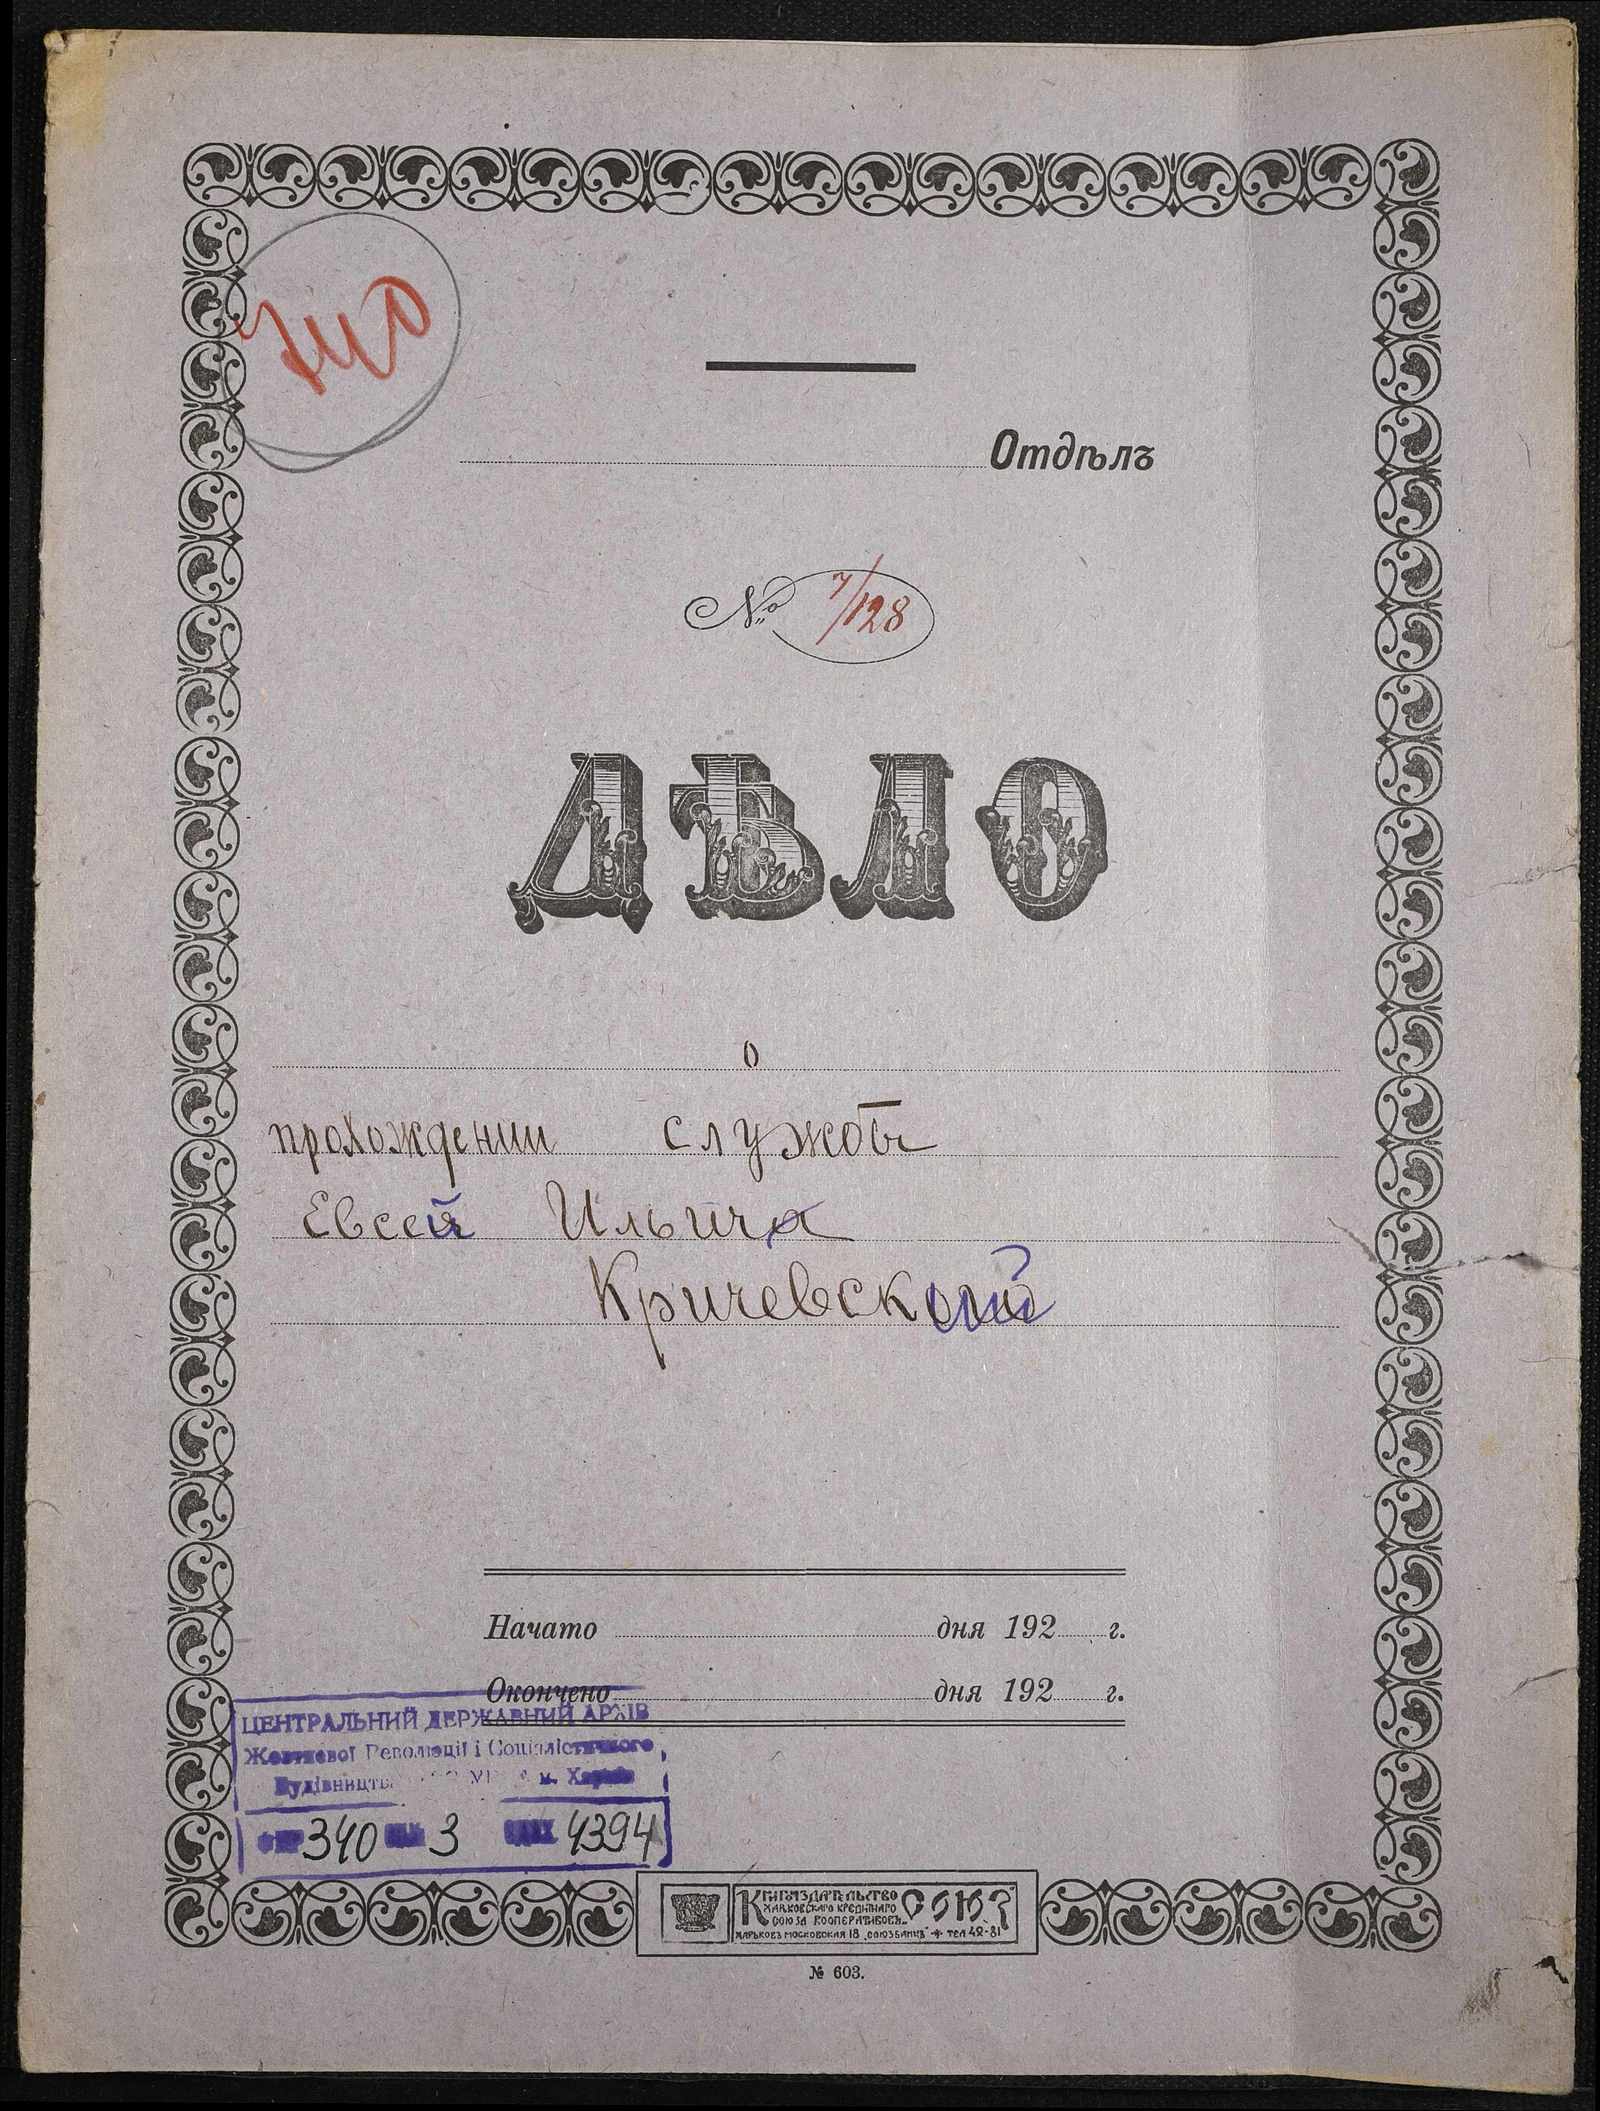 Отдѣлъ
№ 7/128
ДѢЛО
о
прохождении службы
Евсей Ильич
Кричевский
Начато дня 192 г.
Окончено дня 192 г.
ЦЕНТРАЛЬНИЙ ДЕРЖАВНИЙ АРХІВ
Жовтневої Революції і Соціалістичного
Будівництва м. Харків
340 3 4394
КНИГОИЗДАТЕЛЬСТВО
ХАРЬКОВСКАГО КРЕДИТНАГО
СОЮЗА КООПЕРАТИВОВЪ
СОЮЗ
ХАРЬКОВЪ МОСКОВСКАЯ 18 „СОЮЗБАНКЪ" ТЕЛ 42-81
№ 603.